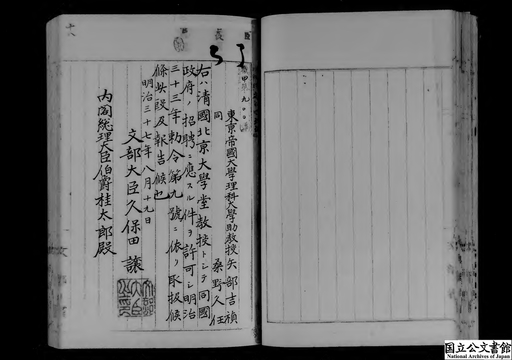 東京帝國大學理科大學助教授矢部吉禎
同 桑野久任
右ハ清國北京大學堂教授トシテ同國
政府ノ招聘ニ應スル件ヲ許可シ明治
三十三年勅令第九號ニ依リ取扱候
條此段及報告候也
明治三十七年八月十九日
文部大臣久保田讓
内閣總理大臣伯爵桂太郎殿
国立公文書館
National Archives of Japan